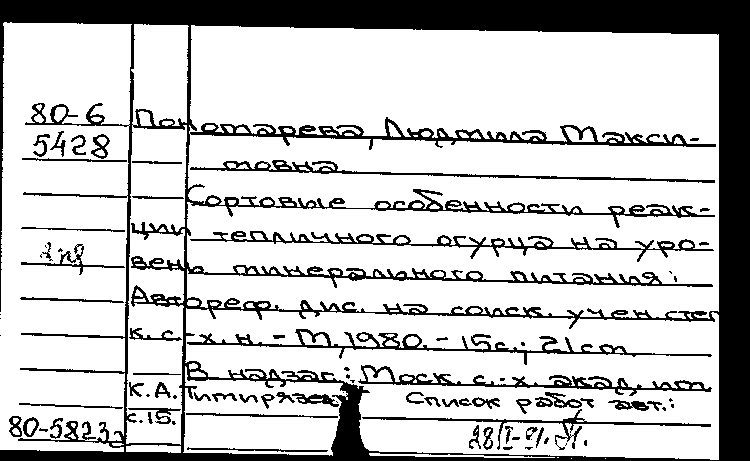 80-6 Пономарева, Людмила Макси-
5428 мовна.
Сортовые особенности реак-
ции тепличного огурца на уро-
вень минерального питания:
Автореф. дис. на соиск. учен. степ
к. с.-х. н. - М, 1980. - 15с.; 21см.
В надзаг.: Моск. с.-х. акад. им.
К.А. Тимирязева Список работ авт.:
с.15.
80-5823а